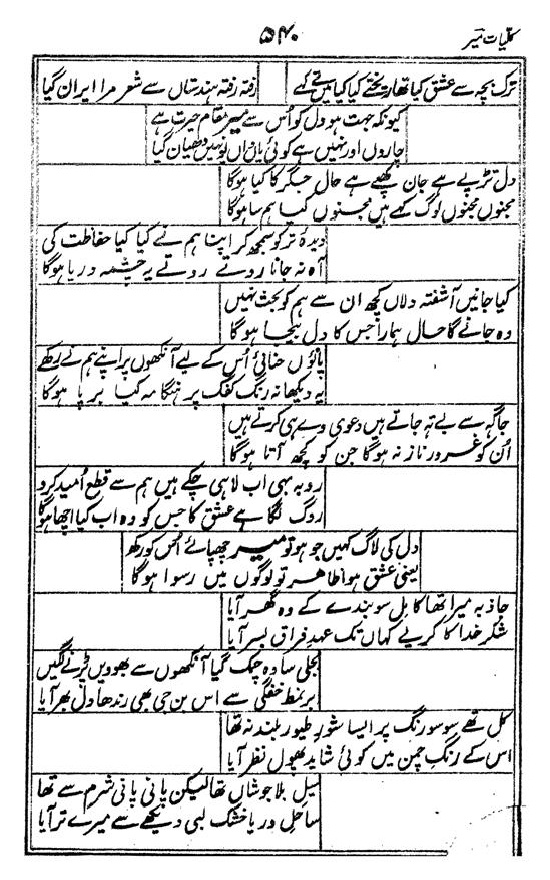 کلیات میر
۵۴۰
ترک بچہ سے عشق کیا تھا ریختے کیا کیا میں نے کہے
رفتہ رفتہ ہندستاں سے شعر مرا ایران گیا
کیونکہ جہت ہو دل کو اُس سے میر مقام حیرت ہے
چاروں اور نہیں ہے کوئی یاں واں یونہیں دھیان گیا
دل تڑپے ہے جان کھپے ہے حال جگر کا کیا ہوگا
مجنوں مجنوں لوگ کہے ہیں مجنوں کیا ہم سا ہوگا
دیدۂ تر کو سمجھ کر اپنا ہم نے کیا کیا حفاظت کی
آہ نہ جانا روتے روتے یہ چشمہ دریا ہوگا
کیا جانیں آشفتہ دلاں کچھ ان سے ہم کو بحث نہیں
وہ جانے گا حال ہمارا جس کا دل بیجا ہوگا
پانؤں حنائی اُس کے لے آنکھوں پر اپنے ہم نے رکھے
یہ دیکھا نہ رنگ کفک پر ہنگامہ کیا برپا ہوگا
جاگہ سے بے تہ جاتے ہیں دعوی وے ہی کرتے ہیں
اُن کو غرور و ناز نہ ہوگا جن کو کچھ آتا ہوگا
روبہ بہی اب لاہی چکے ہیں ہم سے قطع اُمید کرو
روگ لگا ہے عشق کا جس کو وہ اب کیا اچھا ہوگا
دل کی لاگ کہیں جو ہو تو میر چھپائے اُس کو رکھ
یعنی عشق ہوا ظاہر تو لوگوں میں رسوا ہوگا
جاذبہ میرا تھا کامل سو بندے کے وہ گھر آیا
شکر خدا کا کریے کہاں تک عہد فراق بسر آیا
بجلی سا وہ چمک گیا آنکھوں سے بھوویں پڑنے لگیں
برنمط خفگی سے اس بن جی بھی رندھا دل بھر آیا
گل تھے سو سو رنگ پر ایسا شور طیور بلند نہ تھا
اس کے رنگ چمن میں کوئی شاید پھول نظر آیا
سیل بلا جوشاں تھا لیکن پانی پانی شرم سے تھا
ساحل دریا خشک لبی دیکھے سے میرے تر آیا